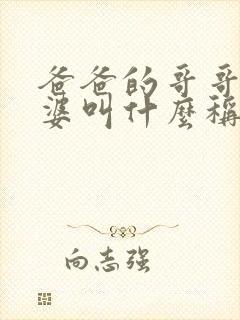 爸爸的哥哥
婆叫什麼稱
向志强